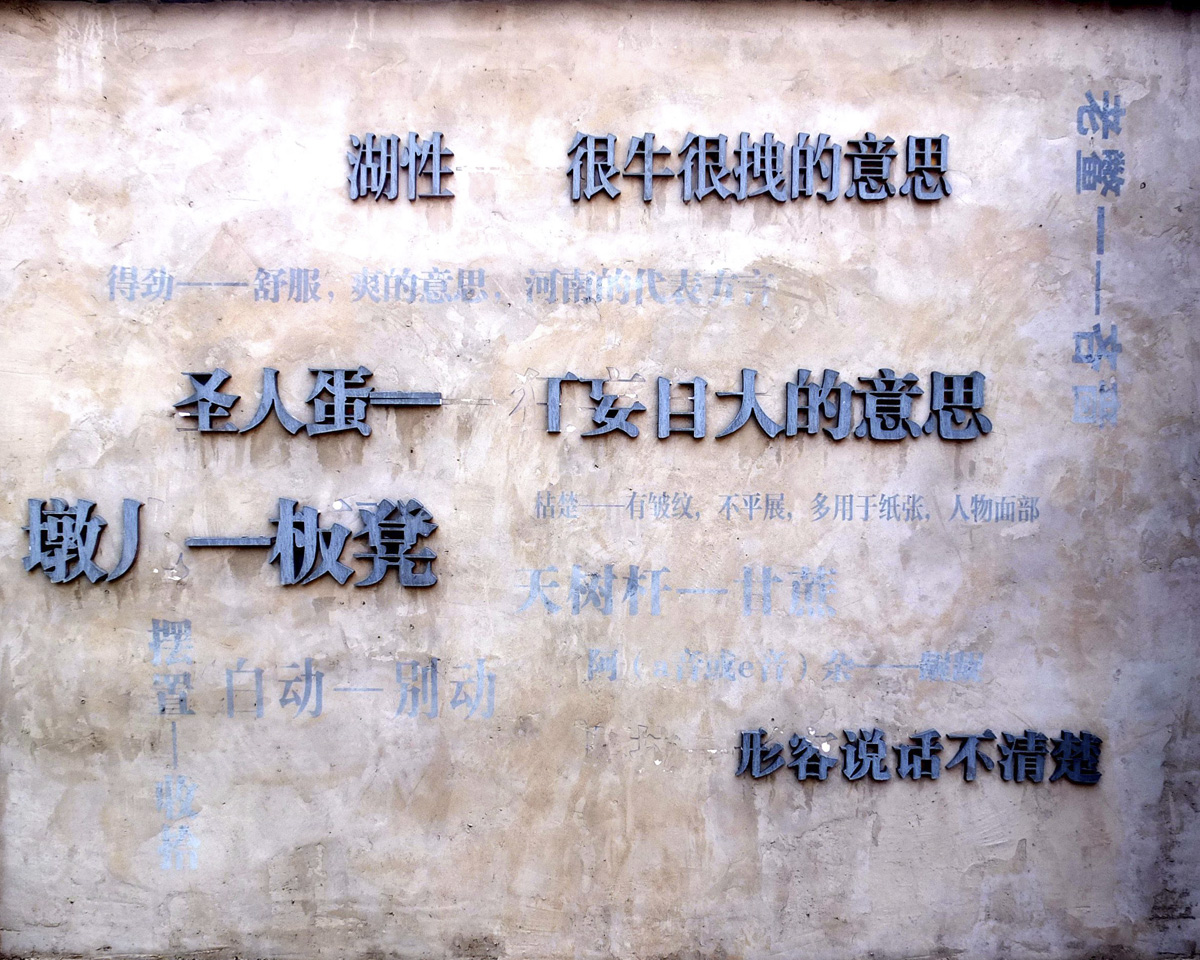 湖性 很牛很拽的意思
老鳖一——吝啬
得劲——舒服，爽的意思，河南的代表方言
圣人蛋—— 狂妄自大的意思
墩儿—板凳
枯楚——有皱纹，不平展，多用于纸张，人物面部
天树杆—甘蔗
摆置—收拾
白动—别动
阿（a音或e音）杂——
形容说话不清楚